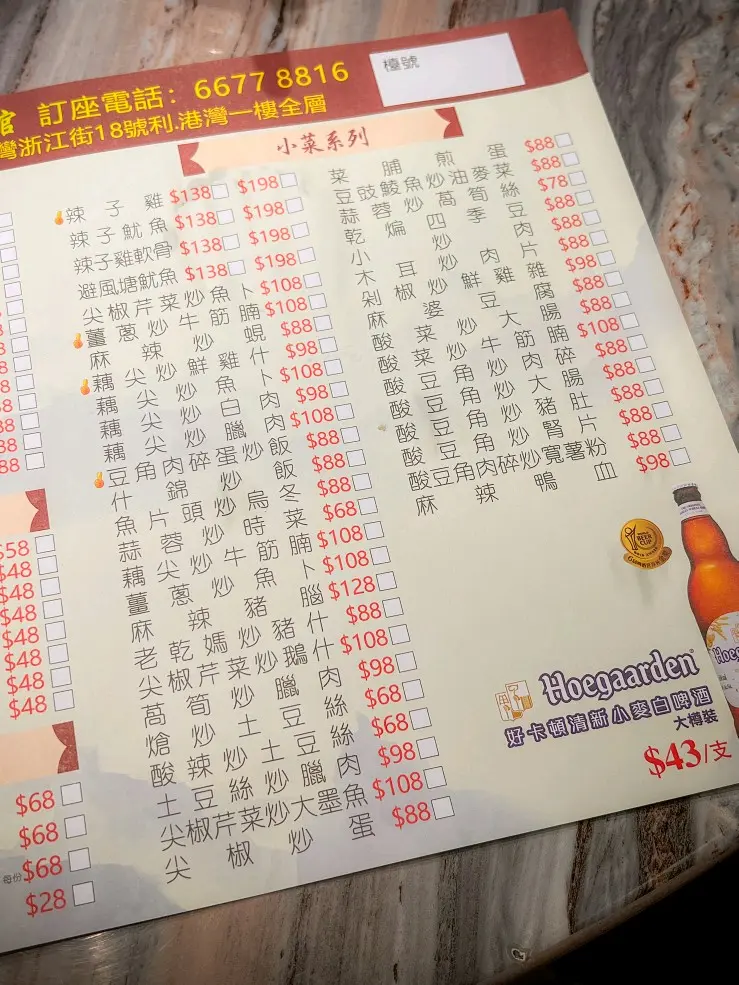 館 訂座電話：6677 8816
檯號
灣浙江街18號利.港灣一樓全層
小菜系列
辣子雞 $138 $198
辣子魷魚 $138 $198
辣子雞軟骨 $138 $198
避風塘魷魚 $138 $198
尖椒芹菜炒魚卜 $108
薑蔥炒牛筋腩 $108
麻辣炒蜆 $88
藕尖炒雞什 $98
藕尖炒鮮魚卜 $108
藕尖炒白肉 $98
藕尖炒臘肉 $108
豆角肉碎蛋炒飯 $88
什錦炒飯 $88
魚片頭炒烏冬 $88
蒜蓉炒時菜 $68
藕尖炒牛筋腩 $108
薑蔥炒魚卜 $108
麻辣豬腦 $128
老乾媽炒豬什 $88
尖椒芹菜炒鵝什 $108
萵筍炒臘肉 $98
熗炒土豆絲 $68
酸辣炒土豆絲 $68
土豆絲炒臘肉 $98
尖椒芹菜炒大墨魚 $108
尖椒炒蛋 $88
菜脯煎蛋 $88
豆豉鯪魚炒油麥菜 $88
蒜蓉炒萵筍絲 $78
乾煸四季豆 $88
小炒肉 $88
木耳炒肉片 $88
剁椒鮮雞雜 $98
麻婆豆腐 $88
酸菜炒大腸 $88
酸菜炒牛筋腩 $108
酸豆角炒肉碎 $88
酸豆角炒大腸 $88
酸豆角炒豬肚 $88
酸豆角炒腎片 $88
酸豆角肉碎炒寬薯粉 $88
麻辣鴨血 $98
$58
$48
$48
$48
$48
$48
$48
$48
$68
$68
每份 $68
$28
Hoegaarden
好卡頓清新小麥白啤酒
大樽裝
$43/支